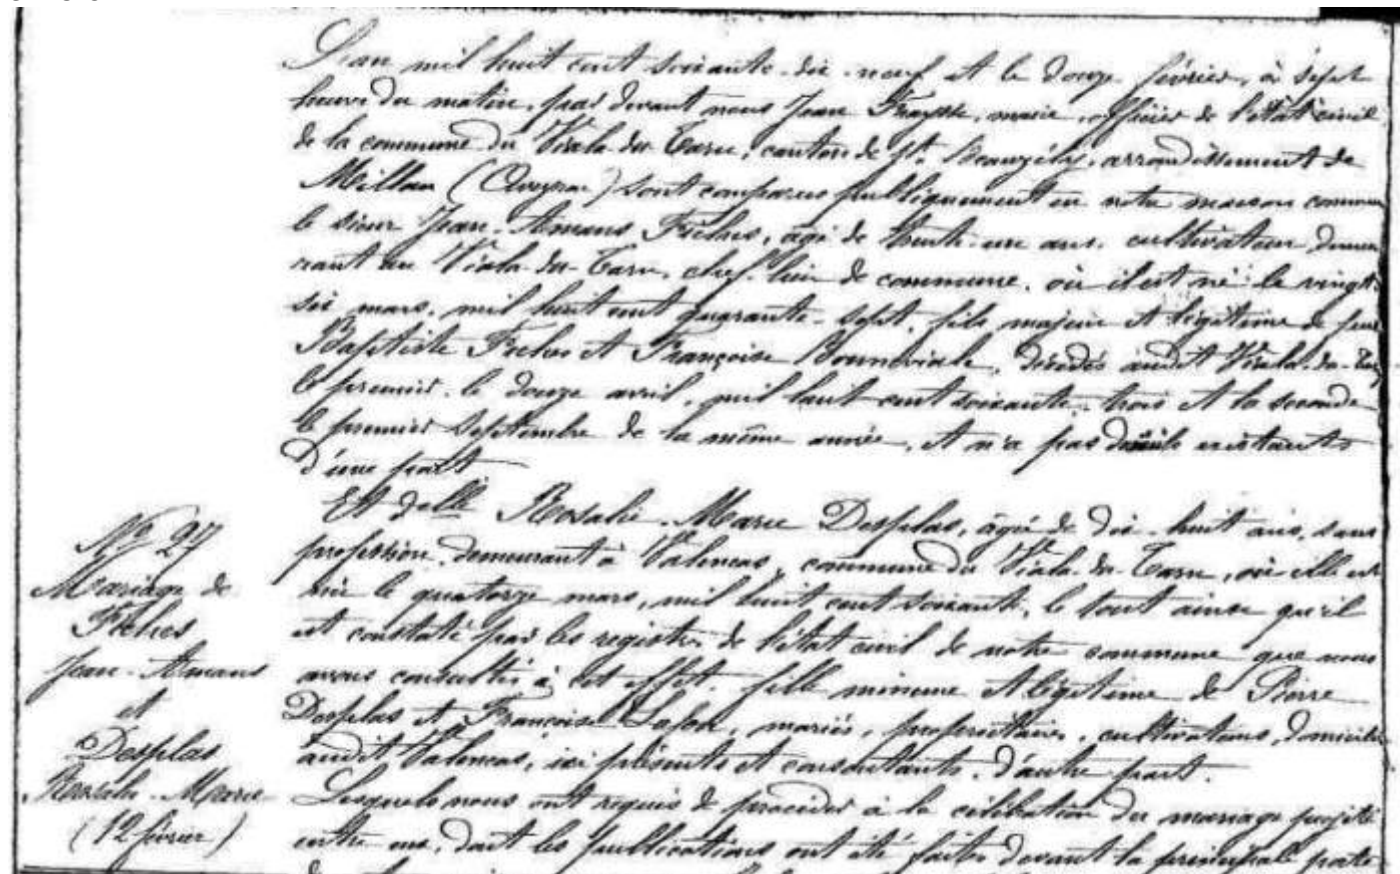 L'an mil huit cent soixante-dix-neuf et le douze février, à sept
heures du matin, par devant nous Jean Fraysse, maire, officier de l'état civil
de la commune du Viala-du-Tarn, canton de St. Beauzély, arrondissement de
Millau (Aveyron) sont comparus publiquement en notre maison commune
le sieur Jean-Amans, âgé de trente-un ans, cultivateur demeu
rant au Viala-du-Tarn, chef-lieu de commune, où il est né le vingt-
six mars, mil huit cent quarante-sept, fils majeur et légitime de feus
Baptiste et Françoise Bonneviale, décédés audit Viala-du-Tarn
le premier, le douze avril, mil huit cent soixante-trois et la seconde
le premier septembre de la même année, et n'a pas existants
d'une part.
Et delle Rosalie-Marie Desplas, âgée de dix-huit ans, sans
profession, demeurant à Valencas, commune du Viala-du-Tarn, où elle est
née le quatorze mars, mil huit cent soixante, le tout ainsi qu'il
est constaté par les registres de l'état civil de notre commune que nous
avons consultés à cet effet, fille mineure et légitime de Pierre
Desplas et Françoise, mariés, propriétaires, cultivateurs, domiciliés
audit Valencas, ici présents et consentants, d'autre part.
Lesquels nous ont requis de procéder à la célébration du mariage projeté
entre eux, dont les publications ont été faites devant la principale porte
No 27
Mariage de
Jean-Amans
et
Desplas
Rosalie-Marie
(12 février)